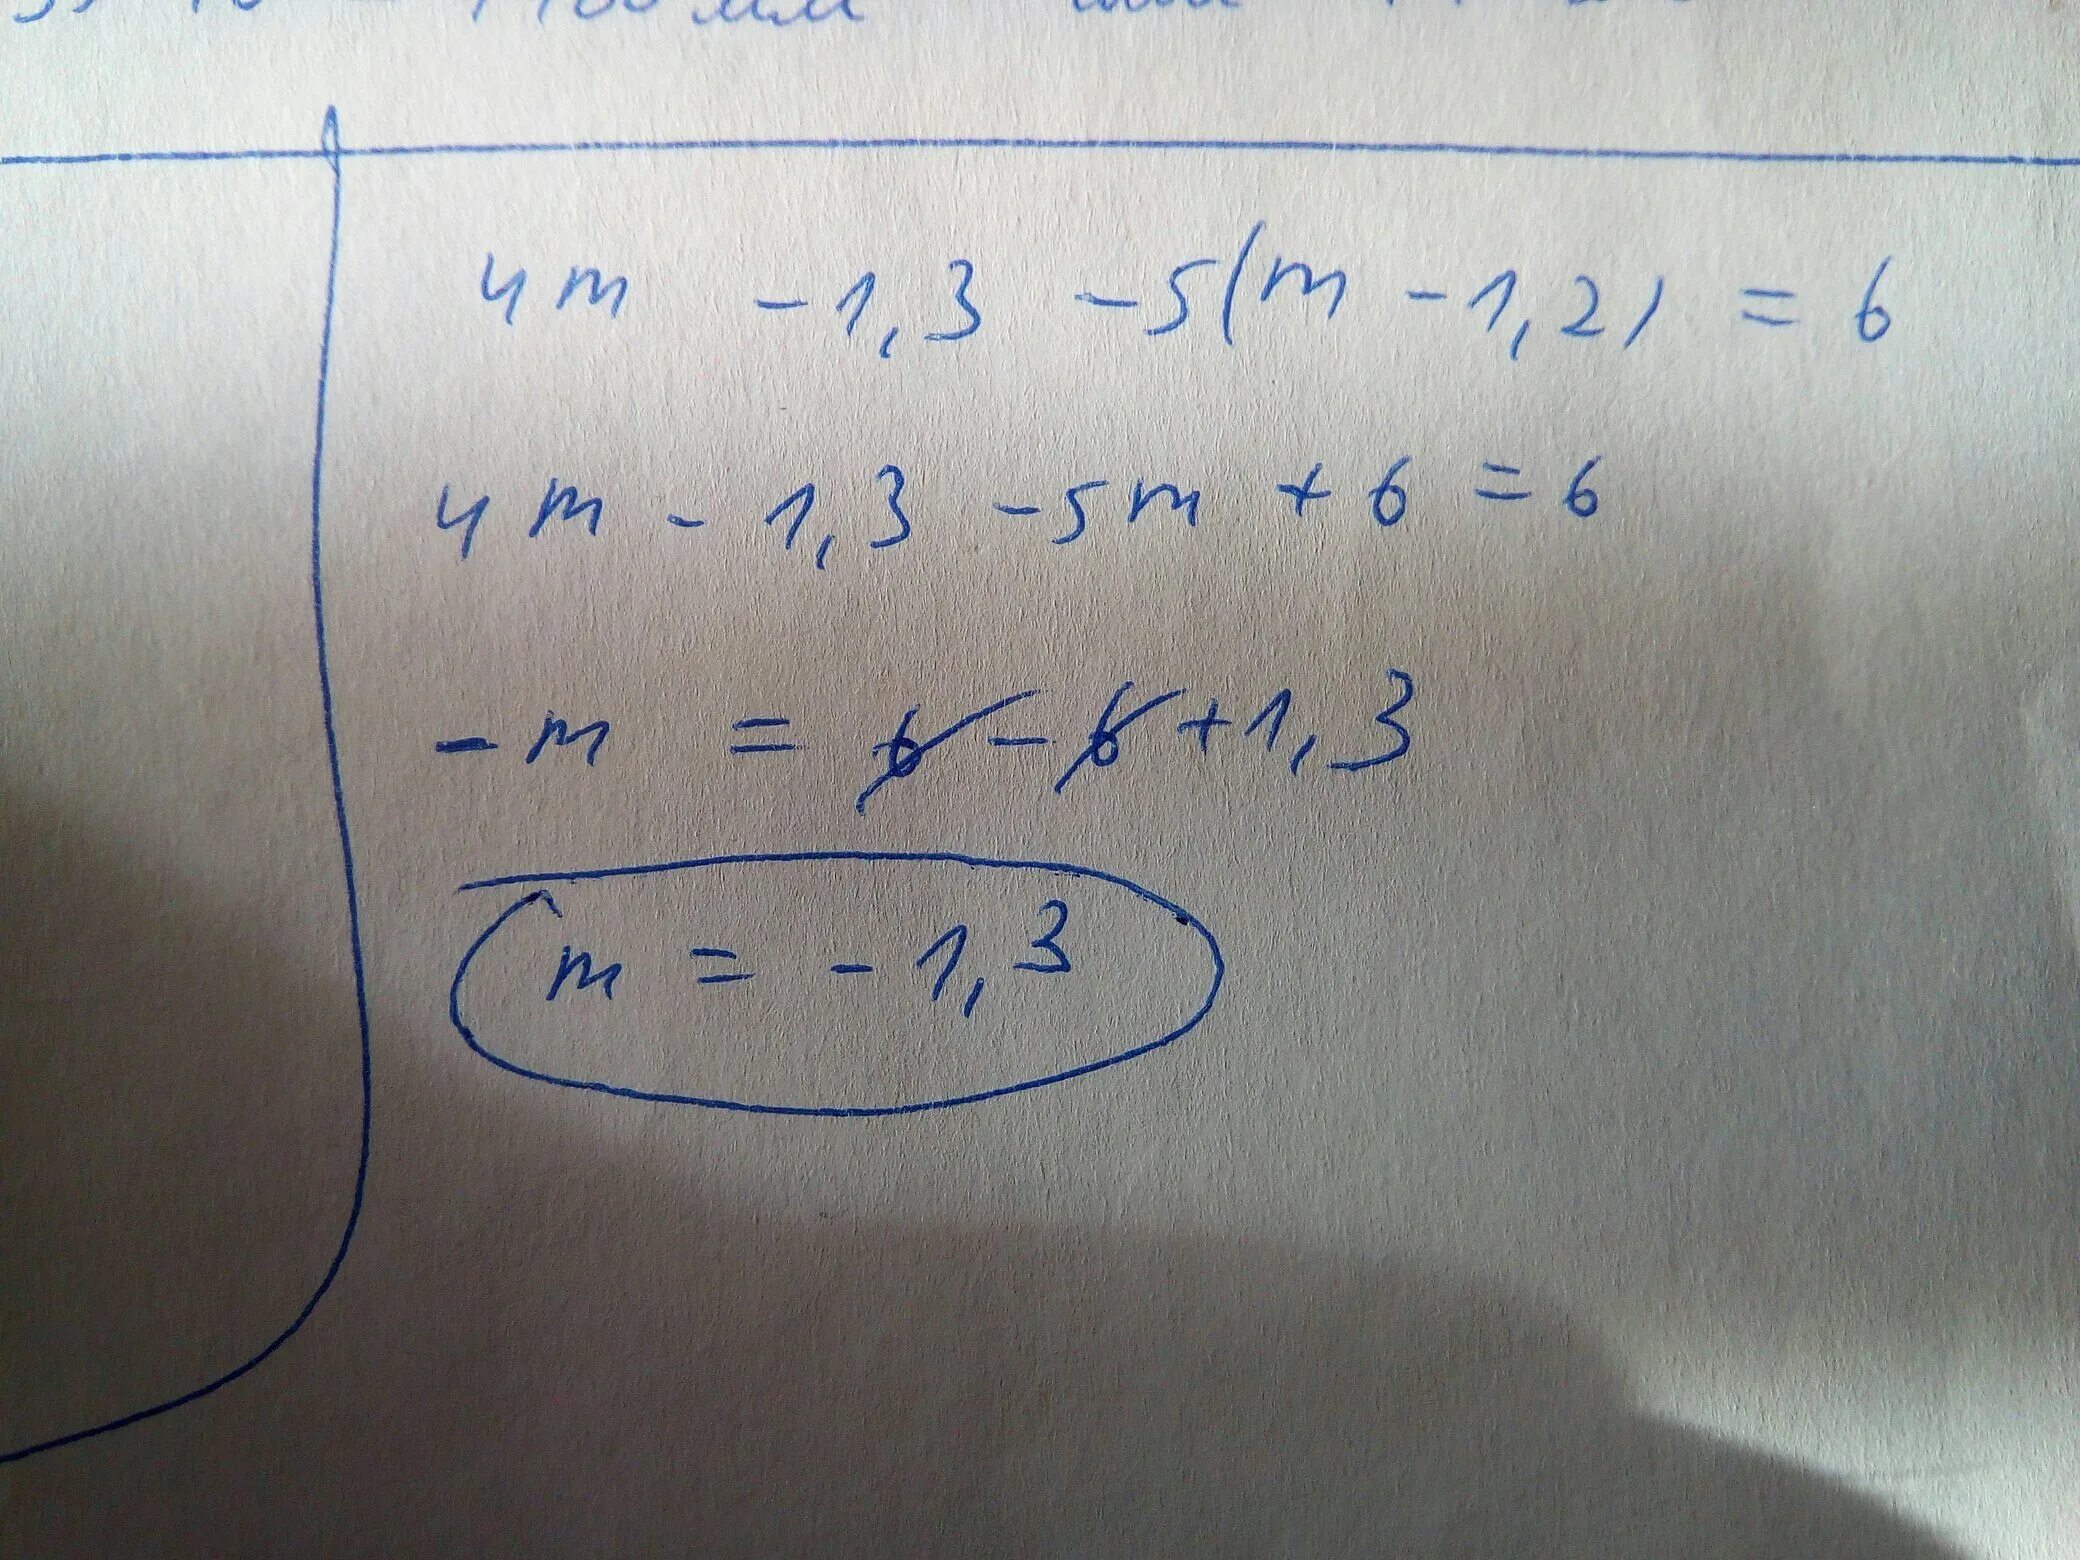 4m - 1,3 - 5(m - 1,2) = 6
4m - 1,3 - 5m + 6 = 6
-m = 6 - 6 + 1,3
m = - 1,3